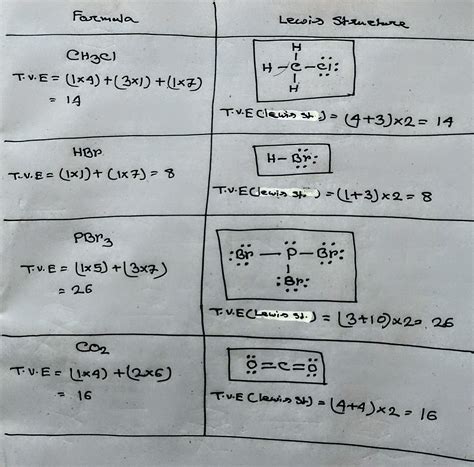 Formula
Lewis Structure
CH3Cl
T.V.E = (1x4) + (3x1) + (1x7)
= 14
H
H-C-Cl:
H
T.V.E (Lewis st.) = (4+3)x2 = 14
HBr
T.V.E = (1x1) + (1x7) = 8
H-Br:
T.V.E (Lewis st.) = (1+3)x2 = 8
PBr3
T.V.E = (1x5) + (3x7)
= 26
:Br-P-Br:
:Br:
T.V.E (Lewis st.) = (3+10)x2= 26
CO2
T.V.E = (1x4) + (2x6)
= 16
Ö=C=Ö
T.V.E (Lewis St) = (4+4)x2 = 16